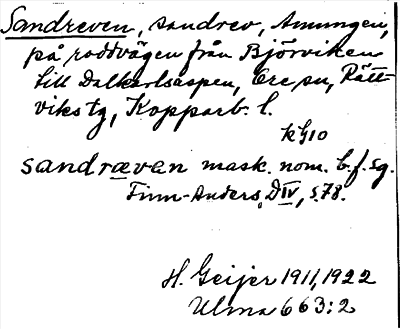 Sandreven, sandrev, Amungen,
på roddvägen från Björviken
till Dalkarlsaspen, Ore sn, Rätt-
viks tg, Kopparb. l.
k410
sandræven mask. nom. b.f. sg.
Finn-Anders, DIV, s.78.
H. Geijer 1911, 1922
Ulma 663:2